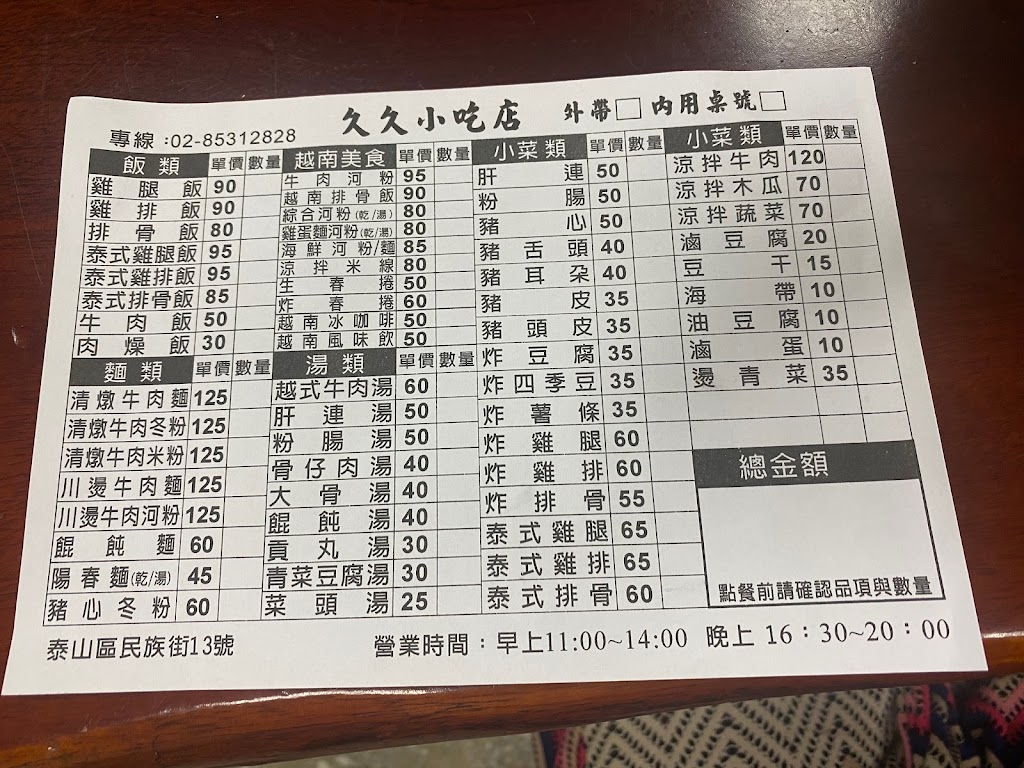 久久小吃店 外帶 內用桌號
專線:02-85312828
飯類 單價 數量
雞腿飯 90
雞排飯 90
排骨飯 80
泰式雞腿飯 95
泰式雞排飯 95
泰式排骨飯 85
牛肉飯 50
肉燥飯 30
麵類 單價 數量
清燉牛肉麵 125
清燉牛肉冬粉 125
清燉牛肉米粉 125
川燙牛肉麵 125
川燙牛肉河粉 125
餛飩麵 60
陽春麵(乾/湯) 45
豬心冬粉 60
越南美食 單價 數量
牛肉河粉 95
越南排骨飯 90
綜合河粉(乾/湯) 80
雞蛋麵河粉(乾/湯) 80
海鮮河粉/麵 85
涼拌米線 80
生春捲 50
炸春捲 60
越南冰咖啡 50
越南風味飲 50
湯類 單價 數量
越式牛肉湯 60
肝連湯 50
粉腸湯 50
骨仔肉湯 40
大骨湯 40
餛飩湯 40
貢丸湯 30
青菜豆腐湯 30
菜頭湯 25
小菜類 單價 數量
肝連 50
粉腸 50
豬心 50
豬舌頭 40
豬耳朵 40
豬皮 35
豬頭皮 35
炸豆腐 35
炸四季豆 35
炸薯條 35
炸雞腿 60
炸雞排 60
炸排骨 55
泰式雞腿 65
泰式雞排 65
泰式排骨 60
小菜類 單價 數量
涼拌牛肉 120
涼拌木瓜 70
涼拌蔬菜 70
滷豆腐 20
豆干 15
海帶 10
油豆腐 10
滷蛋 10
燙青菜 35
總金額
點餐前請確認品項與數量
泰山區民族街13號 營業時間:早上11:00~14:00 晚上 16:30~20:00